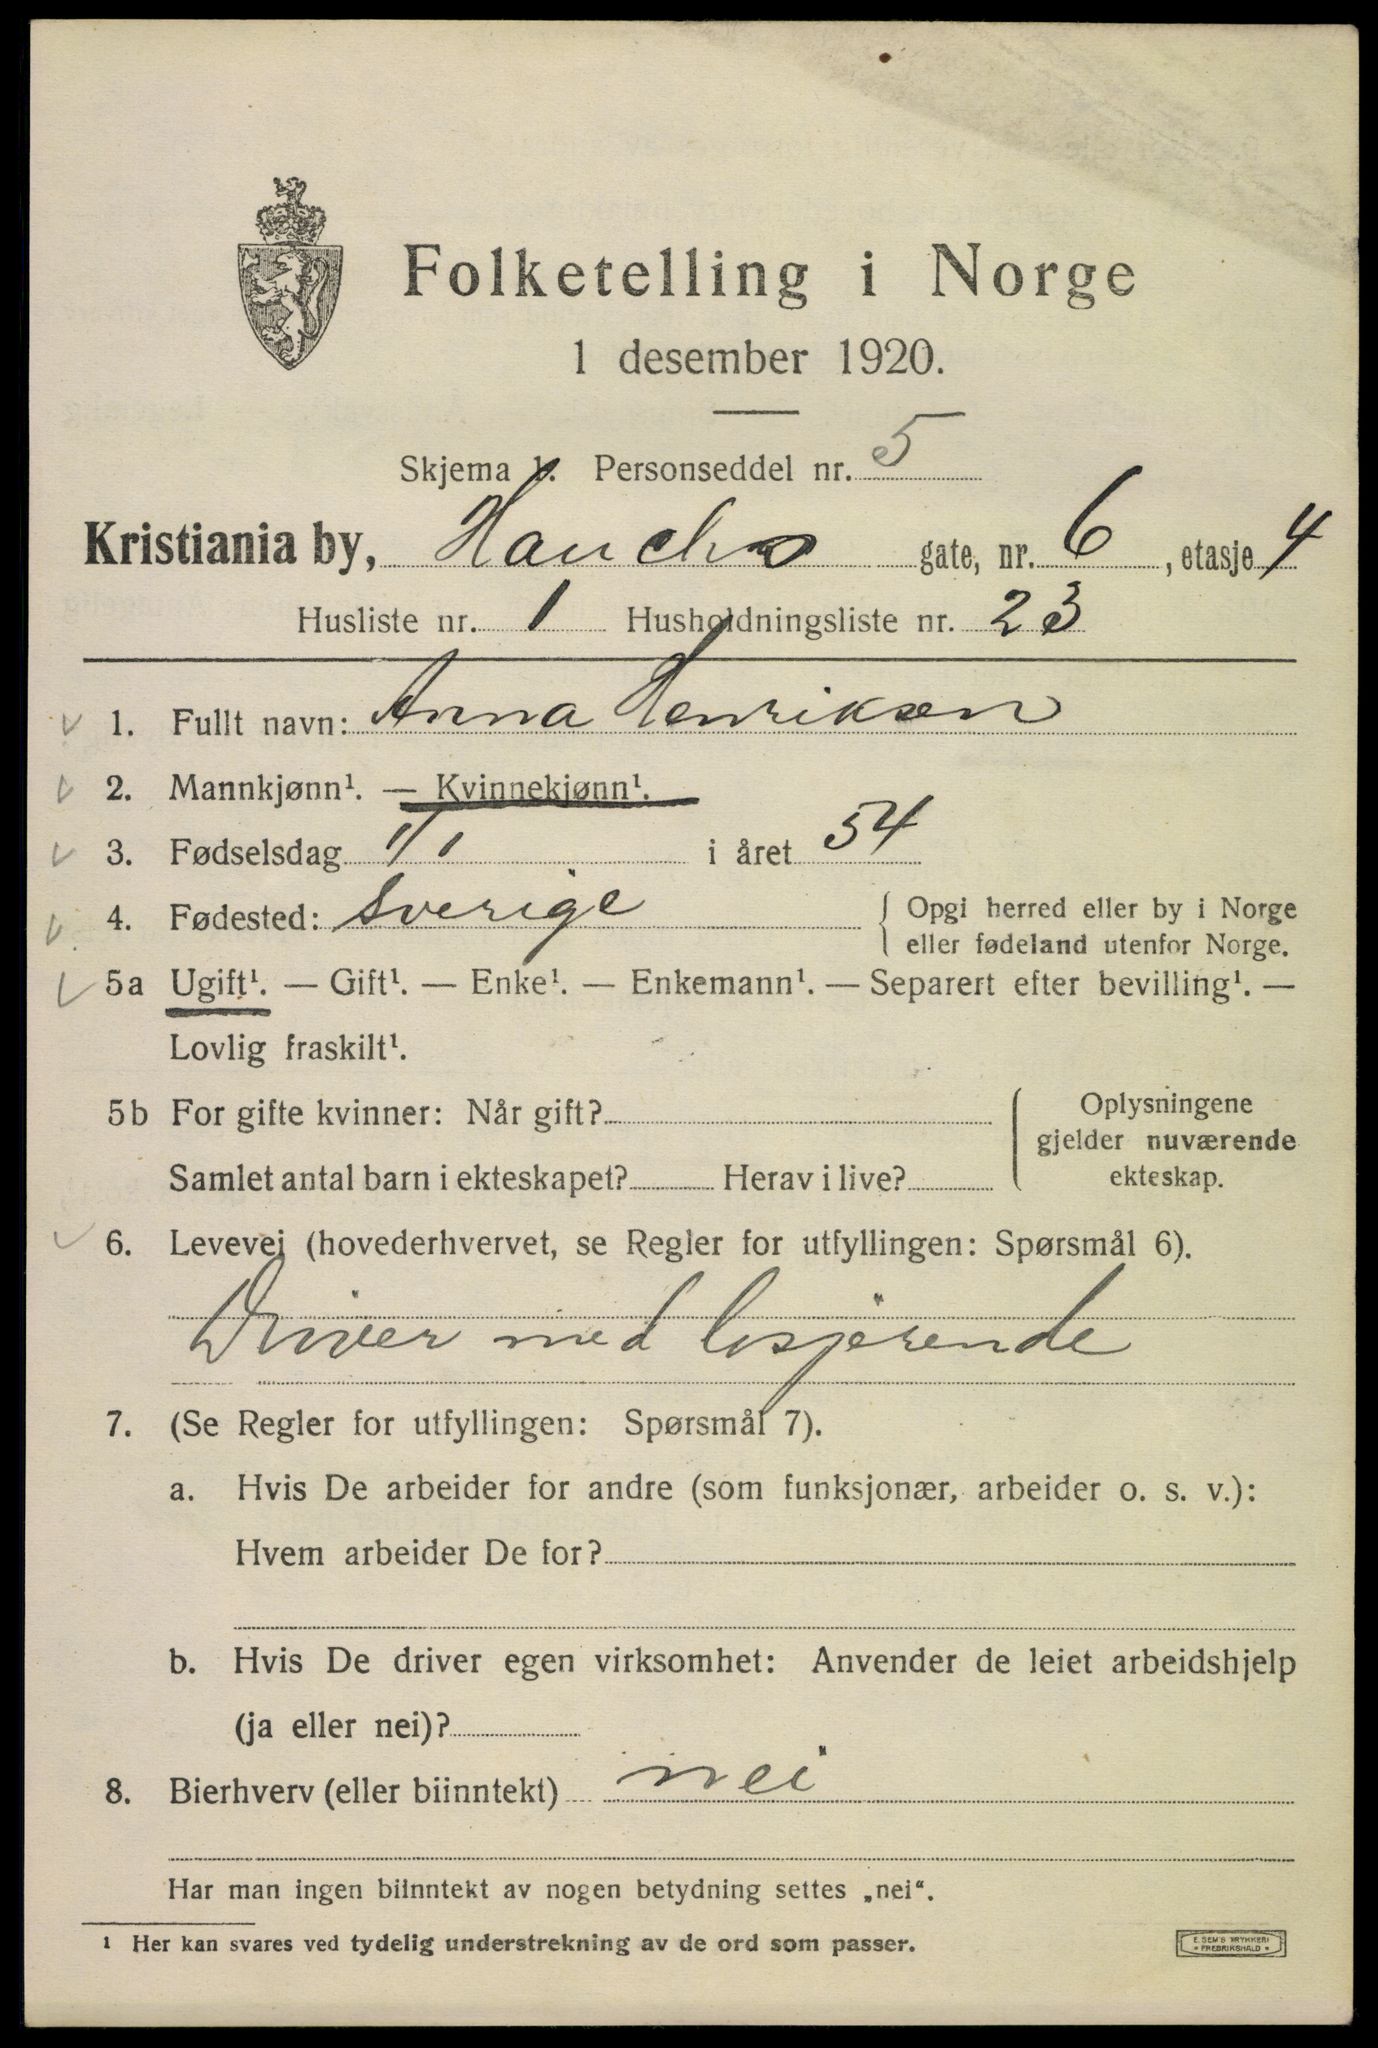 Folketelling i Norge
1 desember 1920.
Skjema 1. Personseddel nr. 5
Kristiania by, Hauchs gate, nr. 6, etasje 4
Husliste nr. 1 Husholdningsliste nr. 23
1. Fullt navn: Anna Henriksen
2. Mannkjønn¹. — Kvinnekjønn¹.
3. Fødselsdag 1/1 i året 54
4. Fødested: Sverige { Opgi herred eller by i Norge
eller fødeland utenfor Norge.
5a Ugift¹. — Gift¹. — Enke¹. — Enkemann¹. — Separert efter bevilling¹. —
Lovlig fraskilt¹.
5b For gifte kvinner: Når gift?
Samlet antal barn i ekteskapet? Herav i live?
Oplysningene
gjelder nuværende
ekteskap.
6. Levevei (hovederhvervet, se Regler for utfyllingen: Spørsmål 6).
Driver med losjerende
7. (Se Regler for utfyllingen: Spørsmål 7).
a. Hvis De arbeider for andre (som funksjonær, arbeider o. s. v.):
Hvem arbeider De for?
b. Hvis De driver egen virksomhet: Anvender de leiet arbeidshjelp
(ja eller nei)?
8. Bierhverv (eller biinntekt) nei
Har man ingen biinntekt av nogen betydning settes „nei“.
¹ Her kan svares ved tydelig understrekning av de ord som passer.
E. SEM'S TRYKKERI
• FREDRIKSHALD •